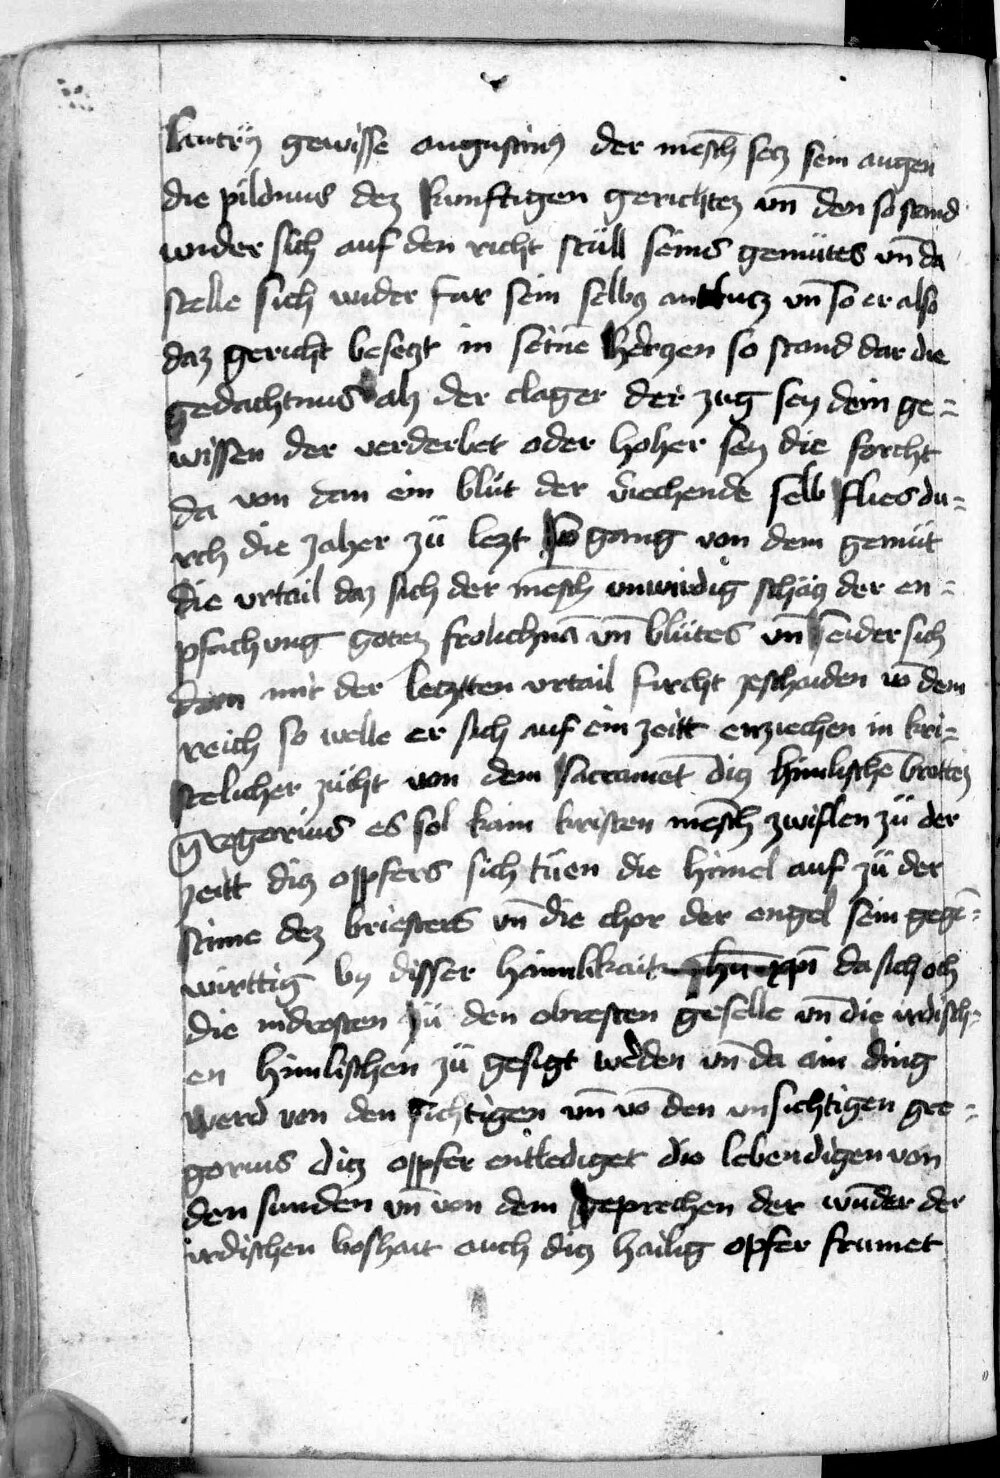 lautrẏ gewisse augustinus der mēsch secz sein augen
die pildnus dez kunftigen gerichtez vn̄ den so stand
wider sich auf den richt stůll seins gemütes vn̄ da
stelle sich vnder far sein selbz antlucz vn̄ so er also
daz gericht beseczt in seinē herczen so stand dar die
gedachtnus alz der clager der zug seẏ dein ge=
wissen der verderbet oder hoher seẏ die forcht
da von dan ein blůt der viechende selb flies du=
rch die zaher zů lezt so gang von dem gemüt
die vrtail daz sich der mēsch vnwirdig schäcz der en=
pfachung gotez frolichnā vn̄ blütes vn̄ sich
dem mit der letztten vrtail furcht zeschaiden vō dem
reich so welle er sich auf ein zeitt enziechen in kri=
stelicher zücht von dem sacramēt dicz himlischē brottez
Gregorius es sol kain kristen mēsch zwiflen zů der
zeitt dicz opfers sich tüen die himel auf zů der
stime dez briesters vn̄ die chor der engel sein gegē=
württig by disser haimlikait da sich och
die nidrosten zů den obresten geselle vn̄ die irdisch=
en himlischen zů gesigt weden vn̄ da ain ding
werd von den sichtigen vn̄ vō den vnsichtigen gre=
gorius dicz opfer entlediget die lebendigen von
den sunden vn̄ von dem geprechen der wunder der
irdischen boshait auch dicz hailig opfer frumet